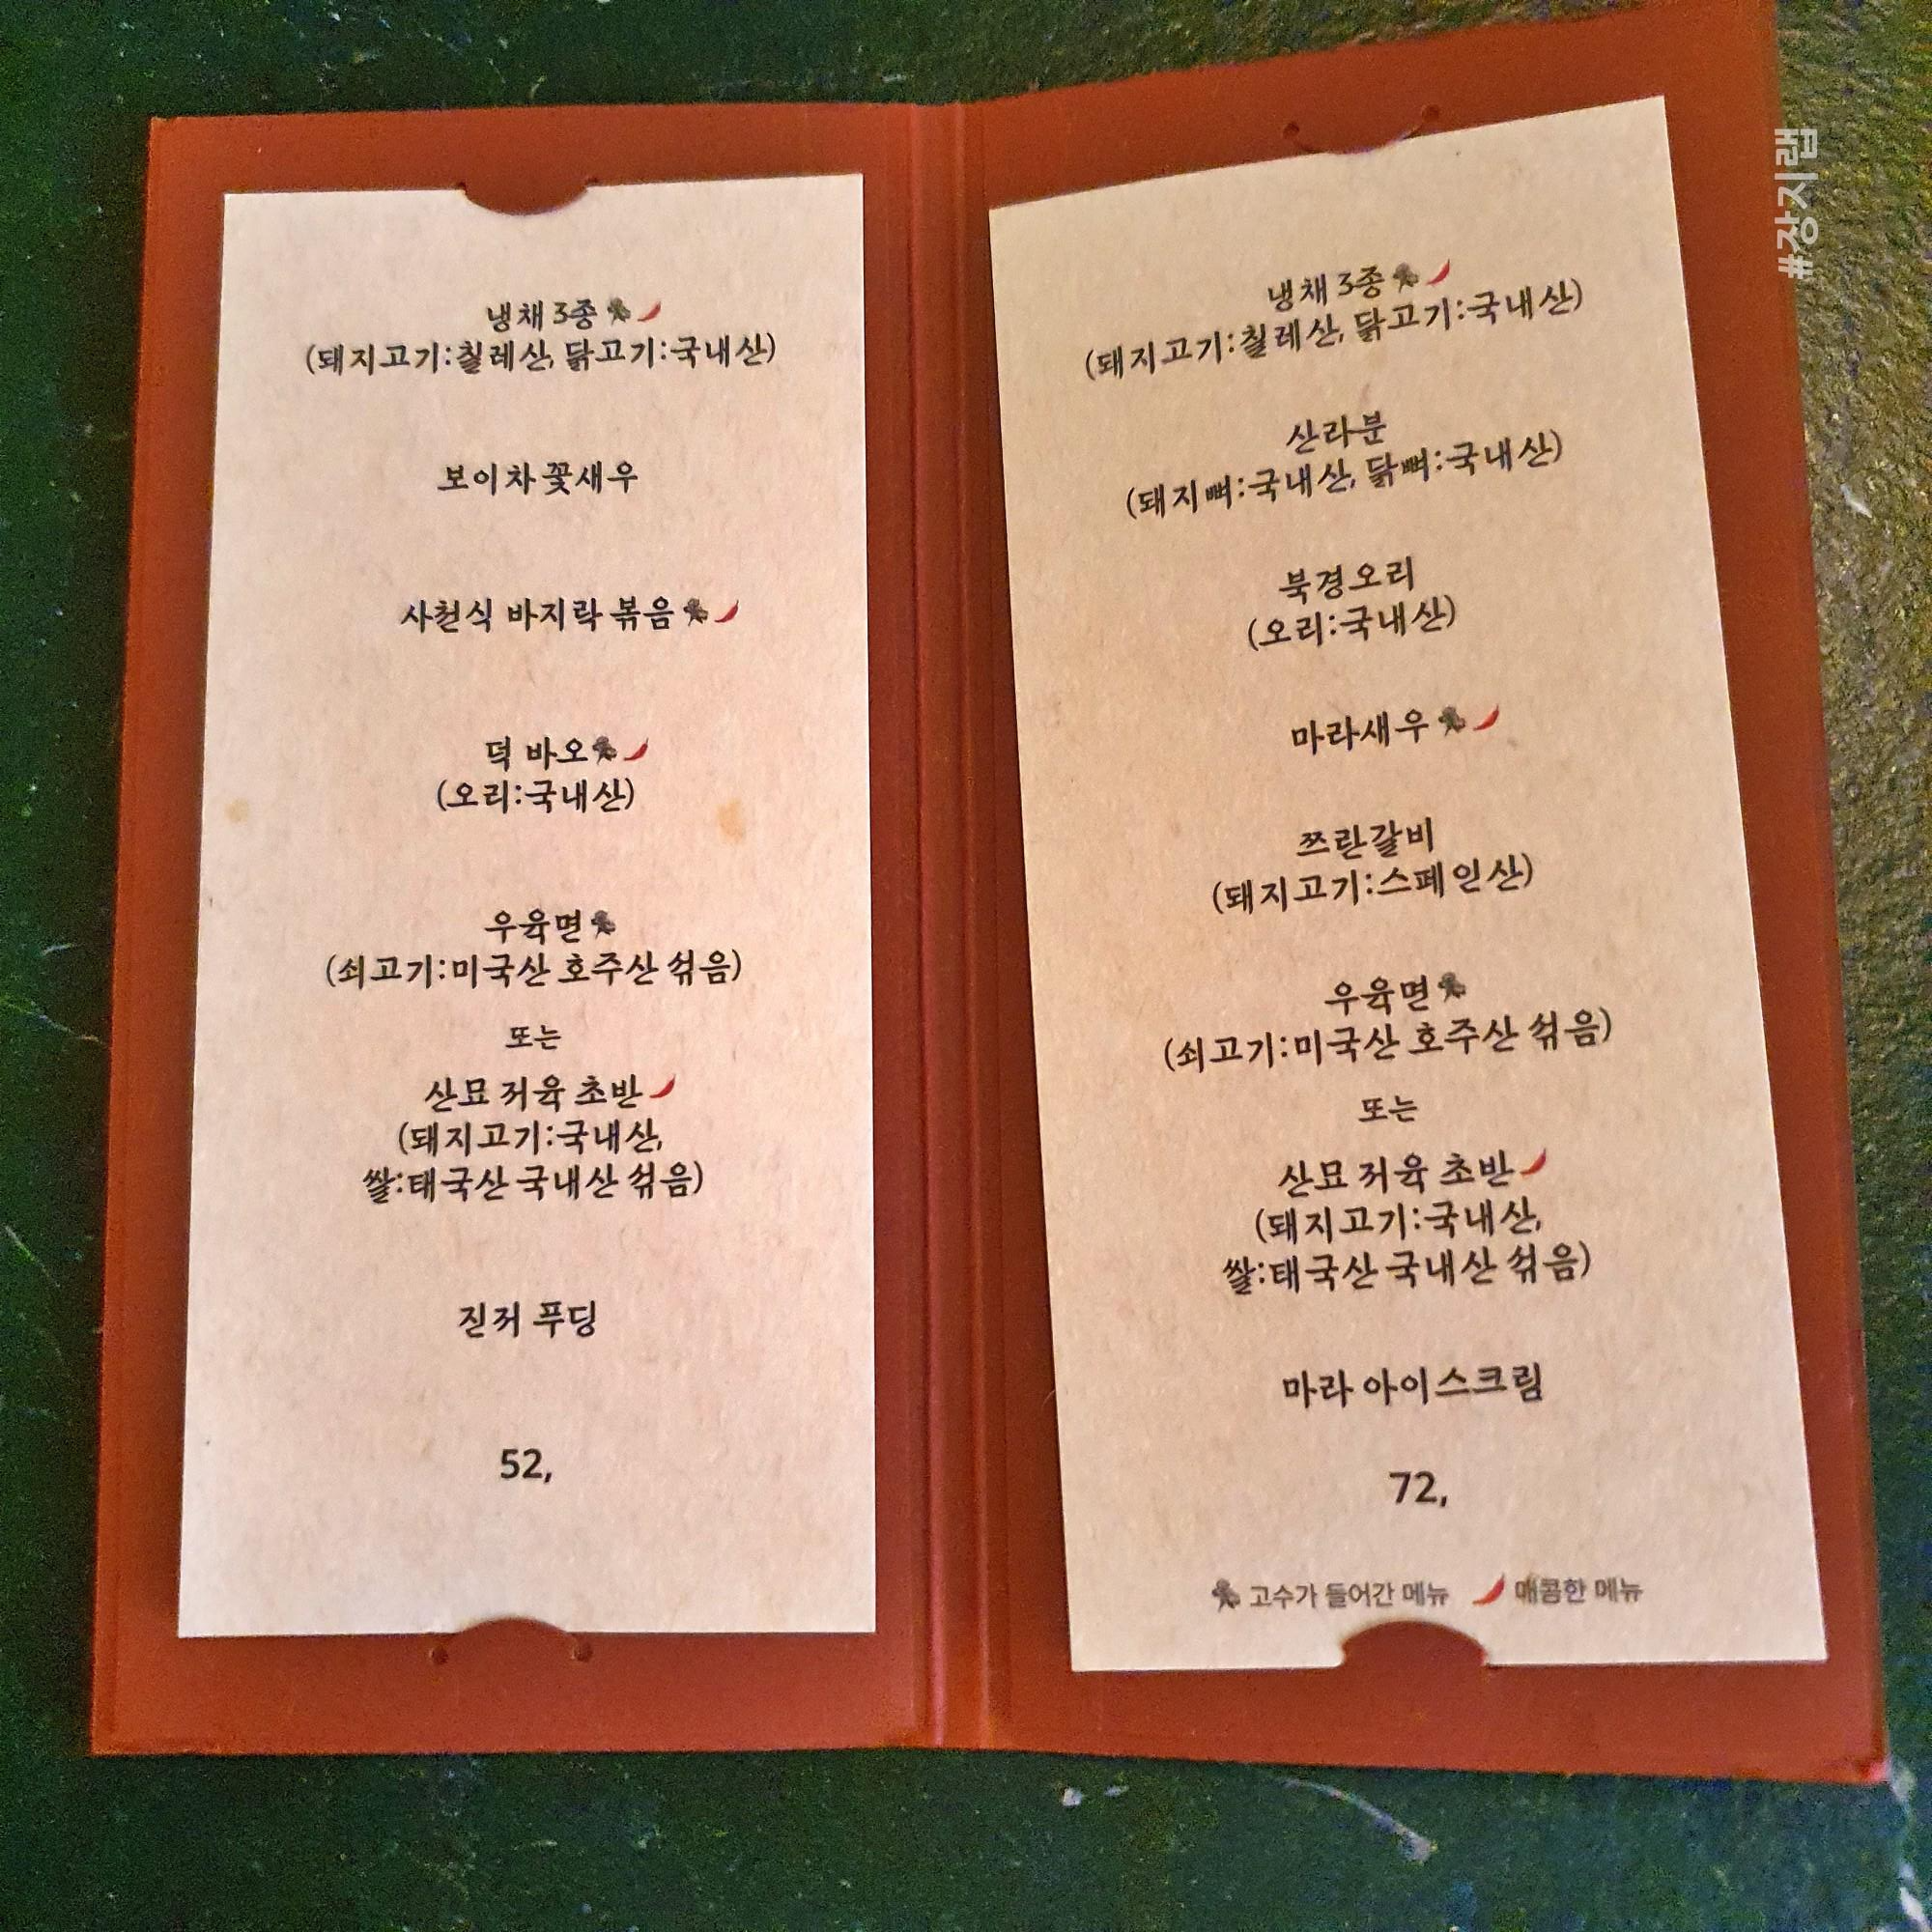 냉채 3종
(돼지고기:칠레산, 닭고기:국내산)
보이차 꽃새우
사천식 바지락 볶음
덕 바오
(오리:국내산)
우육면
(쇠고기:미국산 호주산 섞음)
또는
산묘 저육 초반
(돼지고기:국내산,
쌀:태국산 국내산 섞음)
진저 푸딩
52,
냉채 3종
(돼지고기:칠레산, 닭고기:국내산)
산라분
(돼지뼈:국내산, 닭뼈:국내산)
북경오리
(오리:국내산)
마라새우
쯔란갈비
(돼지고기:스페인산)
우육면
(쇠고기:미국산 호주산 섞음)
또는
산묘 저육 초반
(돼지고기:국내산,
쌀:태국산 국내산 섞음)
마라 아이스크림
72,
고수가 들어간 메뉴 매콤한 메뉴
#장지랩